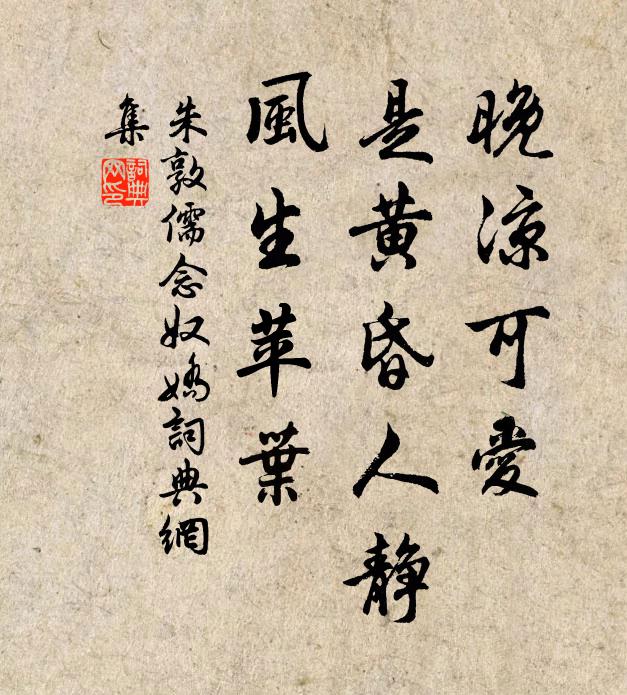 晚凉可愛
是黄昏人静
風生苹葉
朱敦儒念奴嬌詞典網
集
詞典
网印